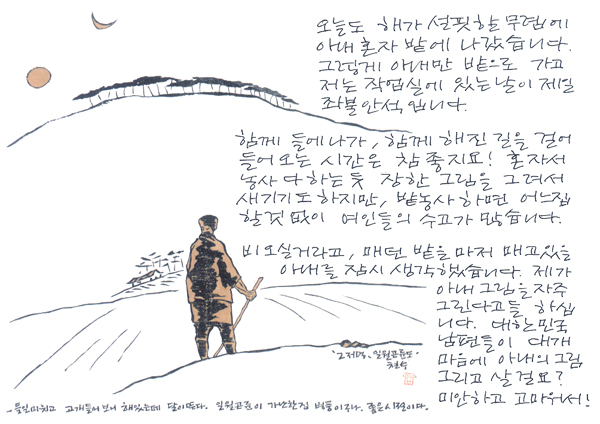 오늘도 해가 설핏할 무렵에
아내 혼자 밭에 나갔습니다.
그렇게 아내만 밭으로 가고
저는 작업실에 있는 날이 제일
좌불안석입니다.
함께 들에 나가, 함께 해진 길을 걸어
들어오는 시간은 참 좋지요! 혼자서
농사 다 하는 듯 장한 그림을 그려서
새기기도 하지만, 밭농사 하면 어느 집
할 것 없이 여인들의 수고가 많습니다.
비 오실거라고, 매던 밭을 마저 매고 있을
아내를 잠시 생각했습니다. 제가
아내 그림을 자주
그린다고들 하십
니다. 대한민국
남편들이 대개
마음에 아내의 그림
그리고 살걸요?
미안하고 고마워서!
일월곤륜도.
철수
- 들일 마치고 고개들어보니 해있는데 달이 뜬다. 일월곤륜이 가난한 집 병풍이구나. 좋은 시절이다.